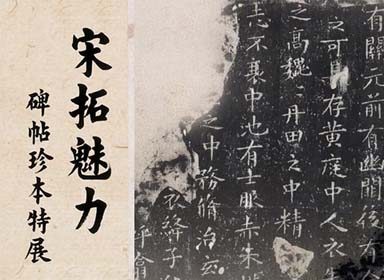 宋拓魅力
碑帖珍本特展
有關元前有幽闕後有
之可長存黃庭中人衣
之高巍〻丹田之中精
志不衰中池有士服赤朱
之中務脩治玄
衣絳子
呼翕